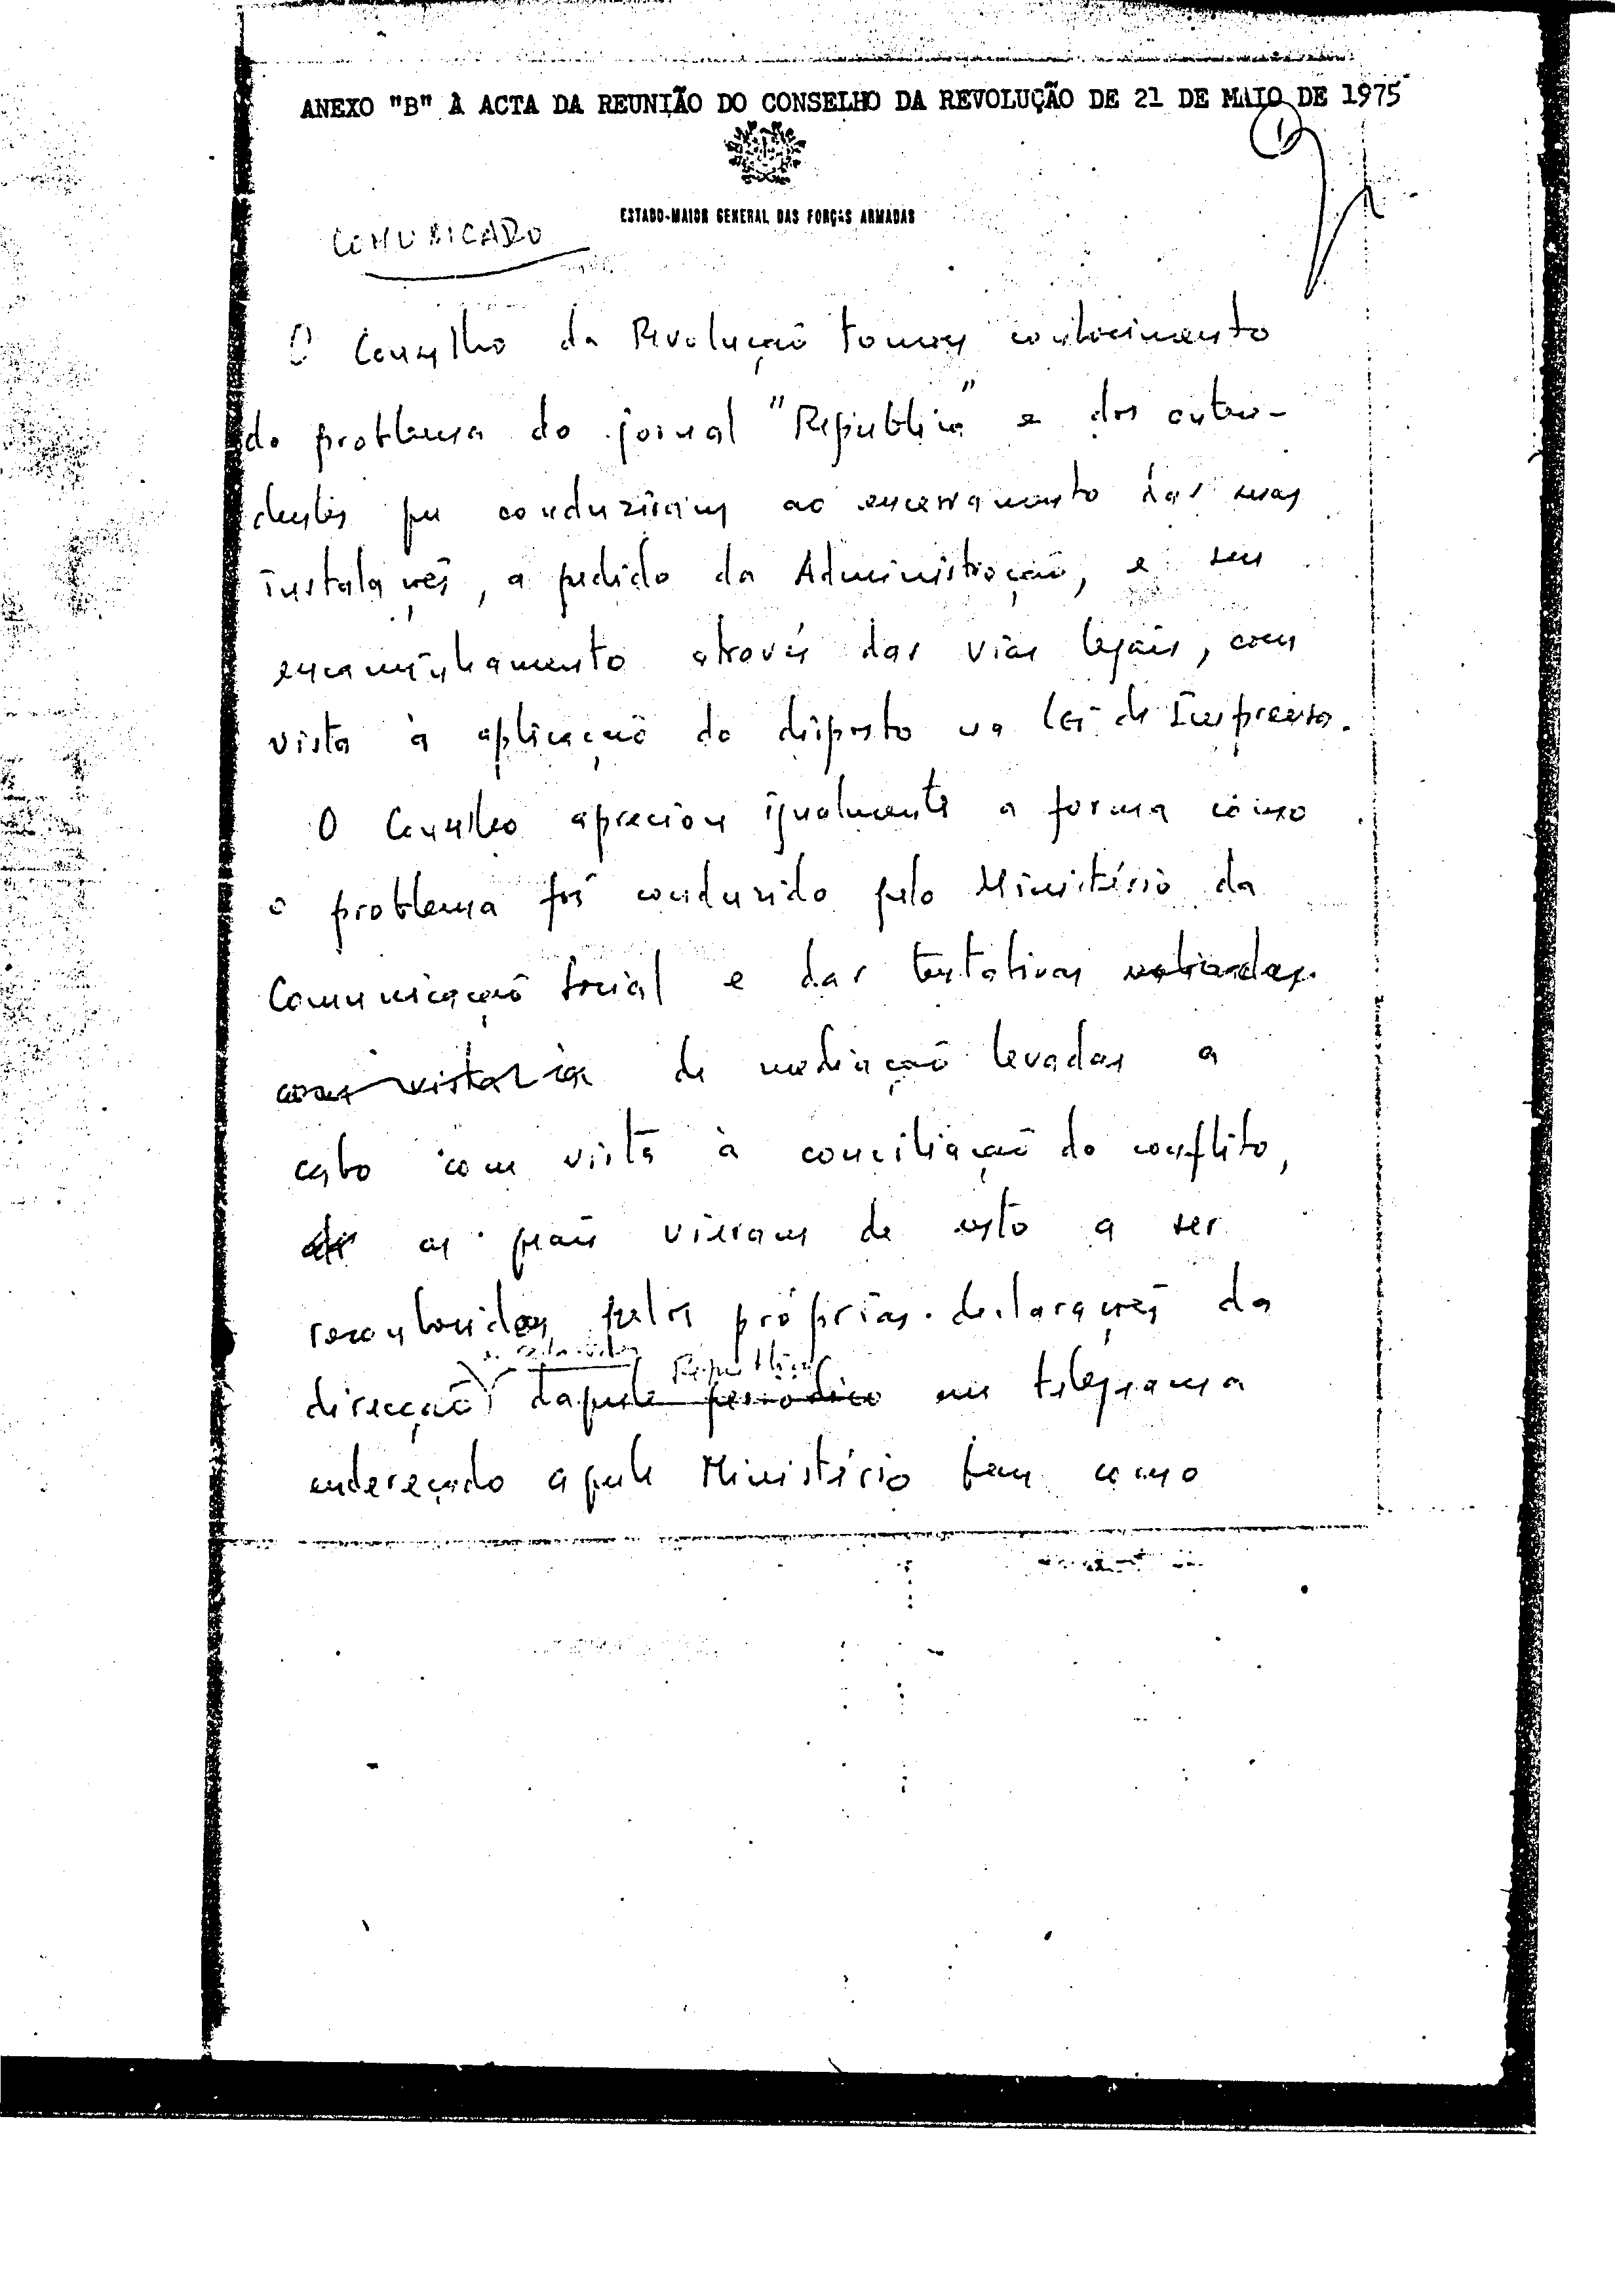 ANEXO "B" À ACTA DA REUNIÃO DO CONSELHO DA REVOLUÇÃO DE 21 DE MAIO DE 1975
1
ESTADO-MAIOR GENERAL DAS FORÇAS ARMADAS
COMUNICADO
O Conselho da Revolução tomou conhecimento
do problema do jornal "República" e dos antece-
dentes que conduziram ao encerramento das suas
instalações, a pedido da Administração, e seu
encaminhamento através das vias legais, com
vista à aplicação do disposto na Lei de Imprensa.
O Conselho apreciou igualmente a forma como
o problema foi conduzido pelo Ministério da
Comunicação Social e das tentativas
com vista à de mediação levadas a
cabo com vista à conciliação do conflito,
as quais vieram de resto a ser
reconhecidas pelas próprias declarações da
República
direcção daquele periódico em telegrama
endereçado aquele Ministério bem como